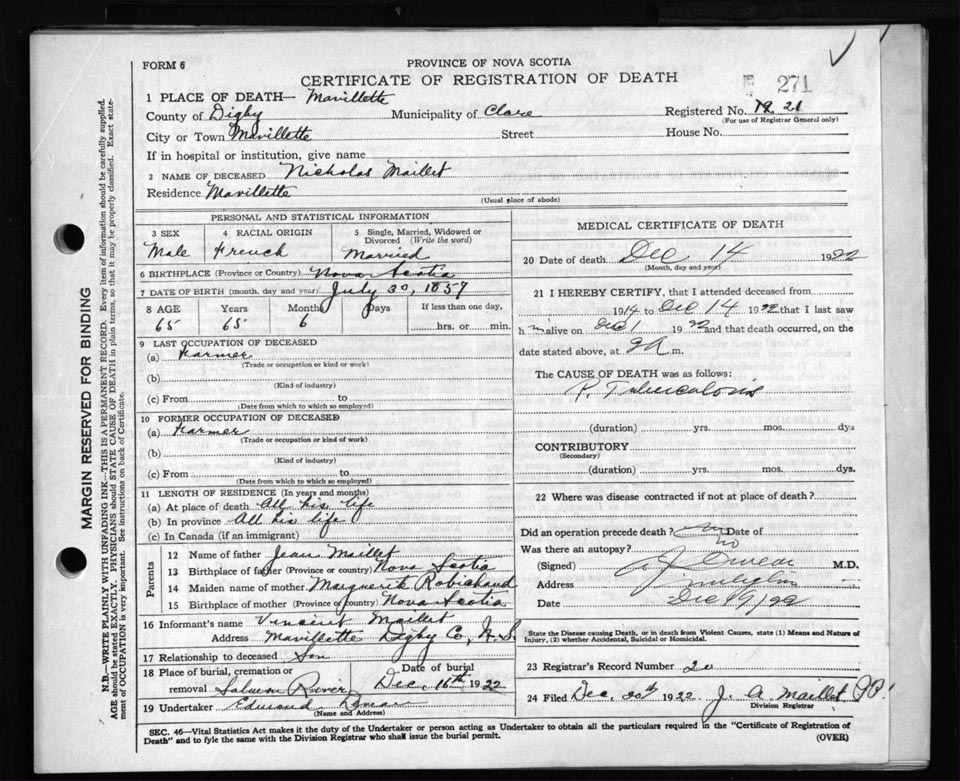 FORM 6
PROVINCE OF NOVA SCOTIA
CERTIFICATE OF REGISTRATION OF DEATH
271
1 PLACE OF DEATH— Mavillette
County of Digby Municipality of Clare Registered No. 21
(For use of Registrar General only)
City or Town Mavillette Street House No.
If in hospital or institution, give name
2 NAME OF DECEASED Nicholas Maillet
Residence Mavillette
(Usual place of abode)
PERSONAL AND STATISTICAL INFORMATION
3 SEX 4 RACIAL ORIGIN 5 Single, Married, Widowed or Divorced (Write the word)
Male French Married
6 BIRTHPLACE (Province or Country) Nova Scotia
7 DATE OF BIRTH (month, day and year) July 30, 1857
8 AGE Years Months Days If less than one day,
65 65 6 hrs. or min.
9 LAST OCCUPATION OF DECEASED
(a) Farmer
(Trade or occupation or kind or work)
(b)
(Kind of industry)
(c) From to
(Date from which to which so employed)
10 FORMER OCCUPATION OF DECEASED
(a) Farmer
(Trade or occupation or kind of work)
(b)
(Kind of industry)
(c) From to
(Date from which to which so employed)
11 LENGTH OF RESIDENCE (In years and months)
(a) At place of death All his life
(b) In province All his life
(c) In Canada (if an immigrant)
Parents
12 Name of father Jean Maillet
13 Birthplace of father (Province or country) Nova Scotia
14 Maiden name of mother Marguerite Robichaud
15 Birthplace of mother (Province or country) Nova Scotia
16 Informant's name Vincent Maillet
Address Mavillette Digby Co, N.S.
17 Relationship to deceased Son
18 Place of burial, cremation or removal Salmon River Date of burial Dec. 16th 1922
19 Undertaker Edmond
(Name and Address)
MEDICAL CERTIFICATE OF DEATH
20 Date of death Dec 14 1922
(Month, day and year)
21 I HEREBY CERTIFY, that I attended deceased from
1914 to Dec 14 1922 that I last saw
h m alive on Dec 1 1922 and that death occurred, on
date stated above, at m.
The CAUSE OF DEATH was as follows:
P. Tuberculosis
(duration) yrs. mos. dys
CONTRIBUTORY
(Secondary)
(duration) yrs. mos. dys.
22 Where was disease contracted if not at place of death?
Did an operation precede death? no Date of
Was there an autopsy? no
(Signed) M.D.
Address
Date Dec 19/22
State the Disease causing Death, or in death from Violent Causes, state (1) Means and Nature of
Injury, (2) whether Accidental, Suicidal or Homicidal.
23 Registrar's Record Number 20
24 Filed Dec. 20th 1922 J. A. Maillet
Division Registrar
SEC. 46—Vital Statistics Act makes it the duty of the Undertaker or person acting as Undertaker to obtain all the particulars required in the "Certificate of Registration of
Death" and to fyle the same with the Division Registrar who shall issue the burial permit. (OVER)
MARGIN RESERVED FOR BINDING
N.B.—WRITE PLAINLY WITH UNFADING INK—THIS IS A PERMANENT RECORD. Every item of information should be carefully supplied.
AGE should be stated EXACTLY. PHYSICIANS should STATE CAUSE OF DEATH in plain terms, so that it may be properly classified. Exact statement
of OCCUPATION is very important. See instructions on back of Certificate.